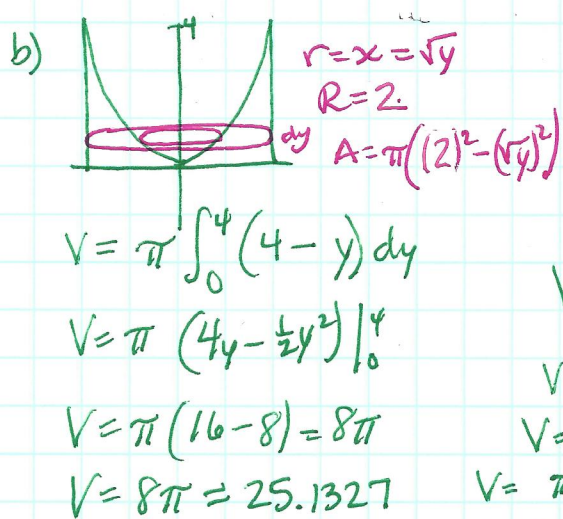 b)
4
r = x = √y
R = 2.
dy
A = π((2)² - (√y)²)
V = π ∫₀⁴ (4 - y) dy
V = π (4y - ½y²) |₀⁴
V = π (16 - 8) = 8π
V = 8π = 25.1327
V
V =
V =